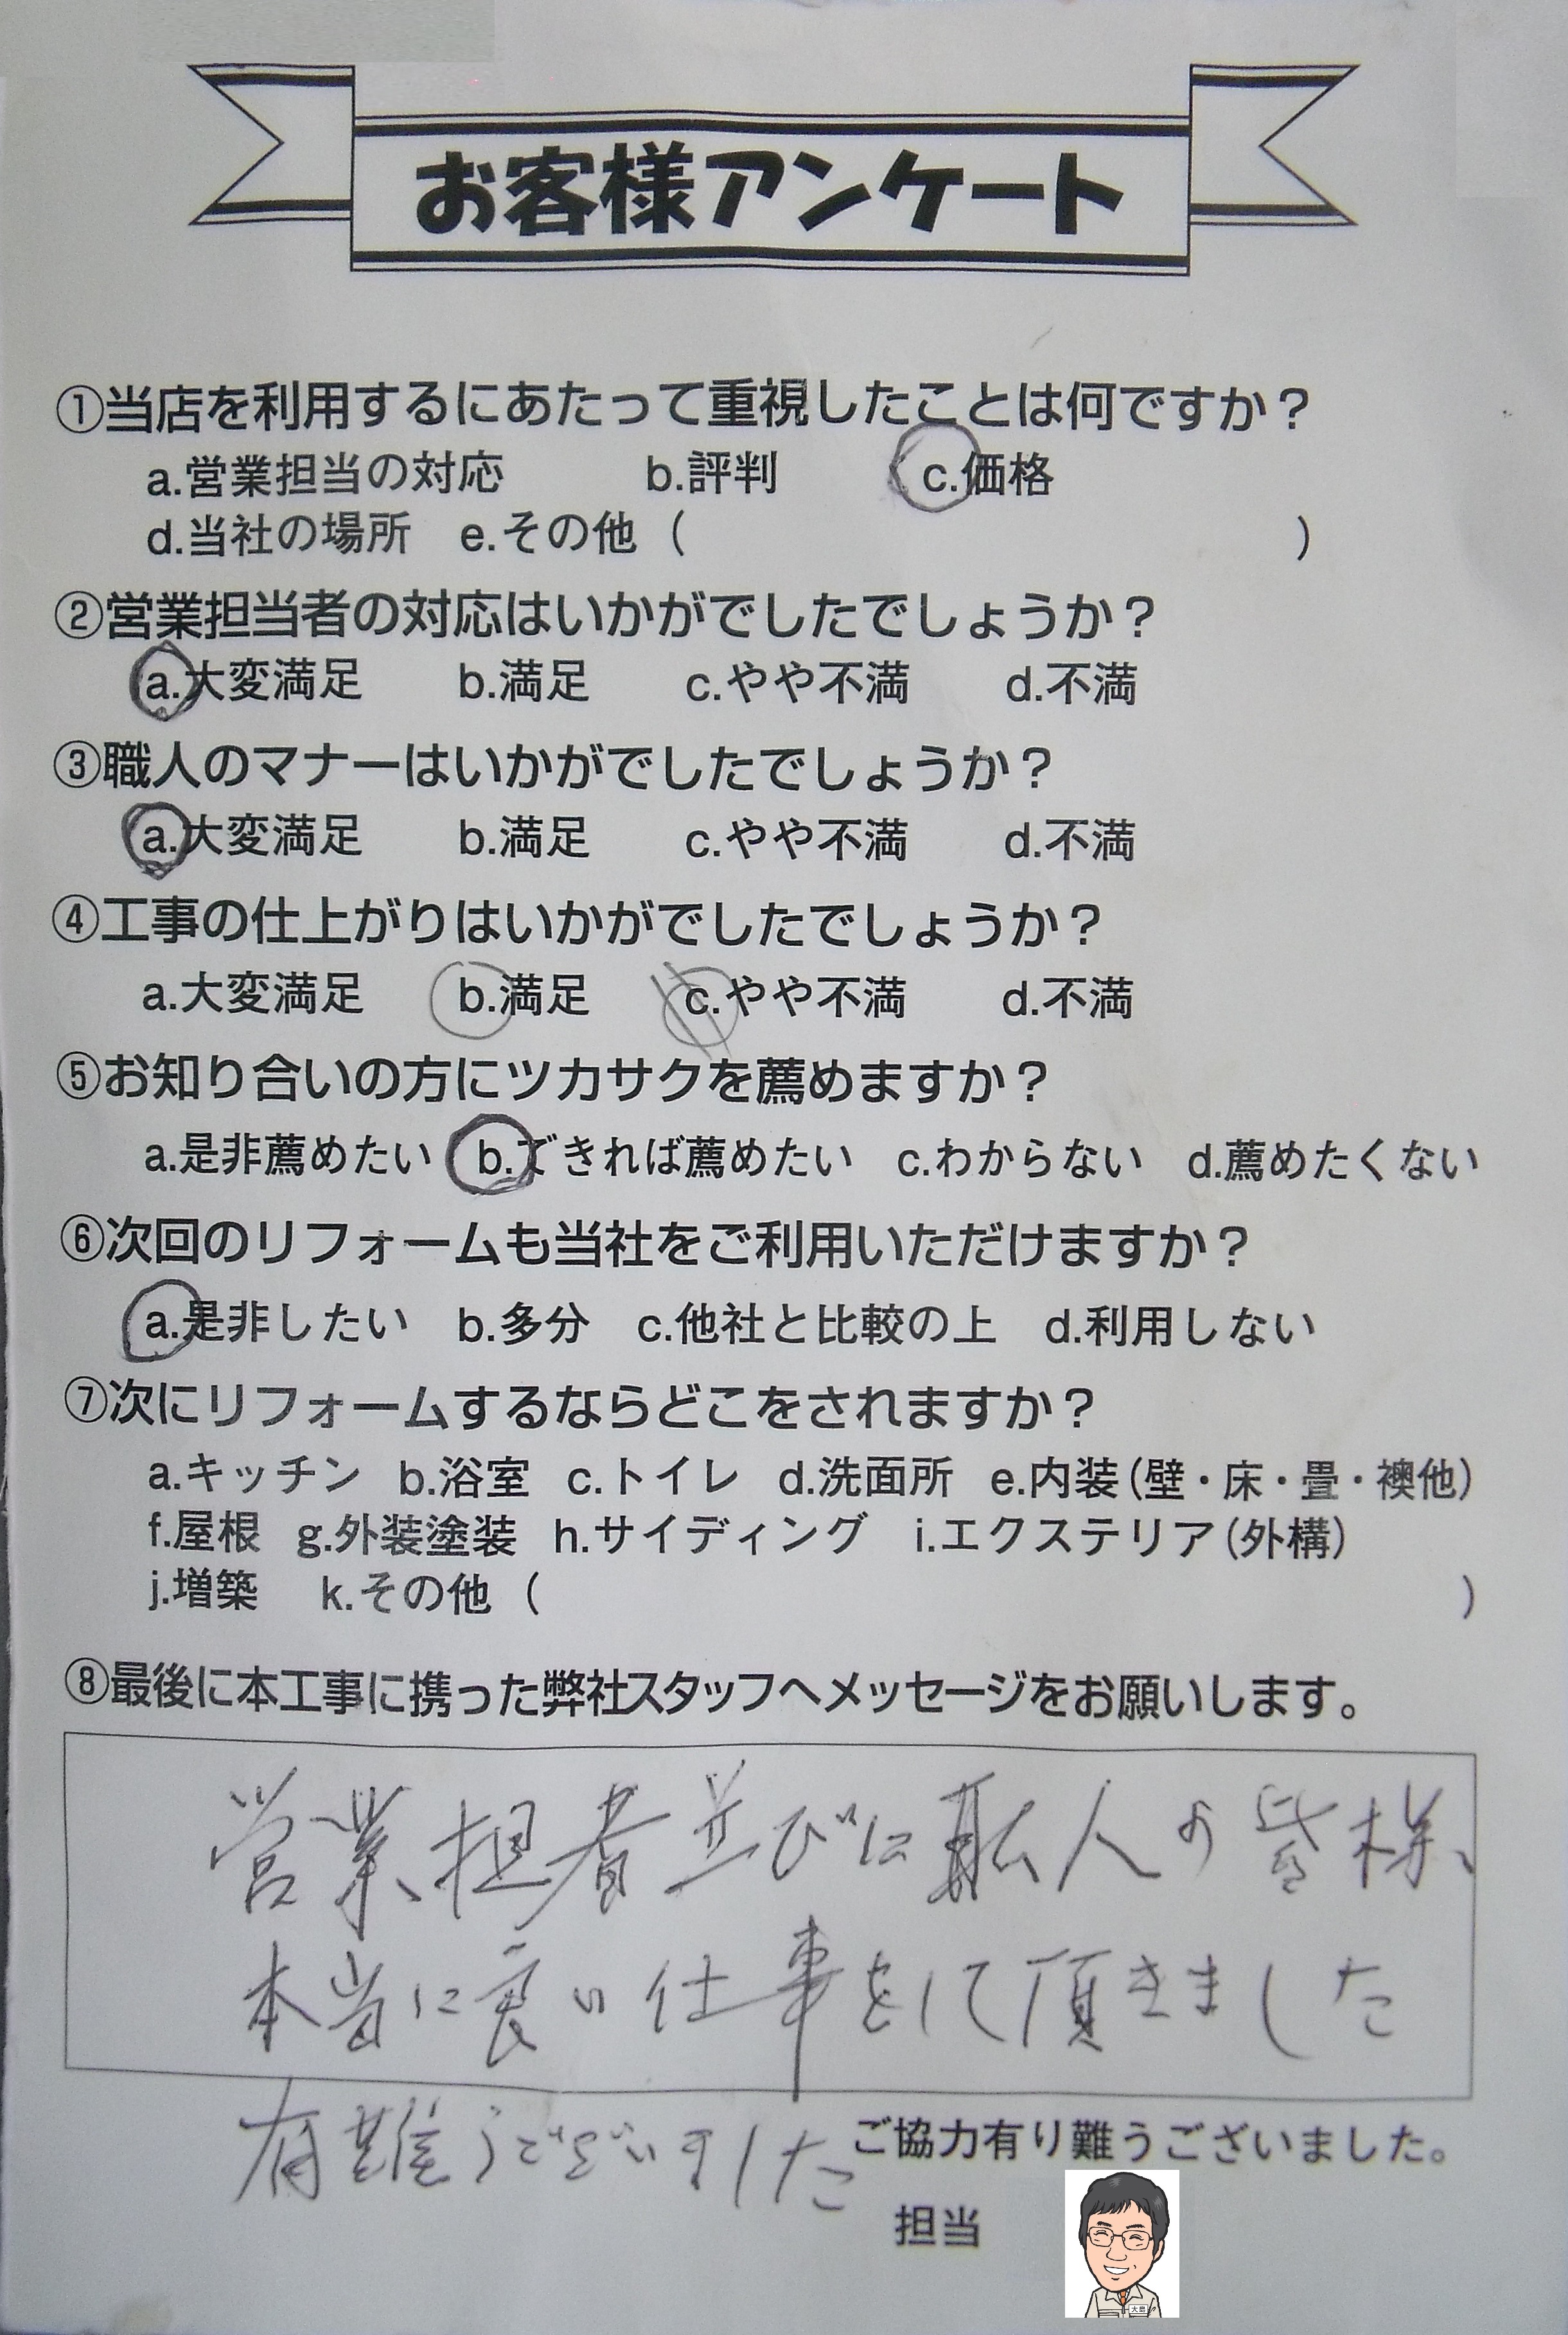 お客様アンケート
①当店を利用するにあたって重視したことは何ですか？
a.営業担当の対応 b.評判 c.価格
d.当社の場所 e.その他 ( )
②営業担当者の対応はいかがでしたでしょうか？
a.大変満足 b.満足 c.やや不満 d.不満
③職人のマナーはいかがでしたでしょうか？
a.大変満足 b.満足 c.やや不満 d.不満
④工事の仕上がりはいかがでしたでしょうか？
a.大変満足 b.満足 c.やや不満 d.不満
⑤お知り合いの方にツカサクを薦めますか？
a.是非薦めたい b.できれば薦めたい c.わからない d.薦めたくない
⑥次回のリフォームも当社をご利用いただけますか？
a.是非したい b.多分 c.他社と比較の上 d.利用しない
⑦次にリフォームするならどこをされますか？
a.キッチン b.浴室 c.トイレ d.洗面所 e.内装(壁・床・畳・襖他)
f.屋根 g.外装塗装 h.サイディング i.エクステリア(外構)
j.増築 k.その他 ( )
⑧最後に本工事に携った弊社スタッフへメッセージをお願いします。
営業担者並びに職人の皆様、
本当に良い仕事をして頂きました
有難うございました
ご協力有り難うございました。
担当
大島